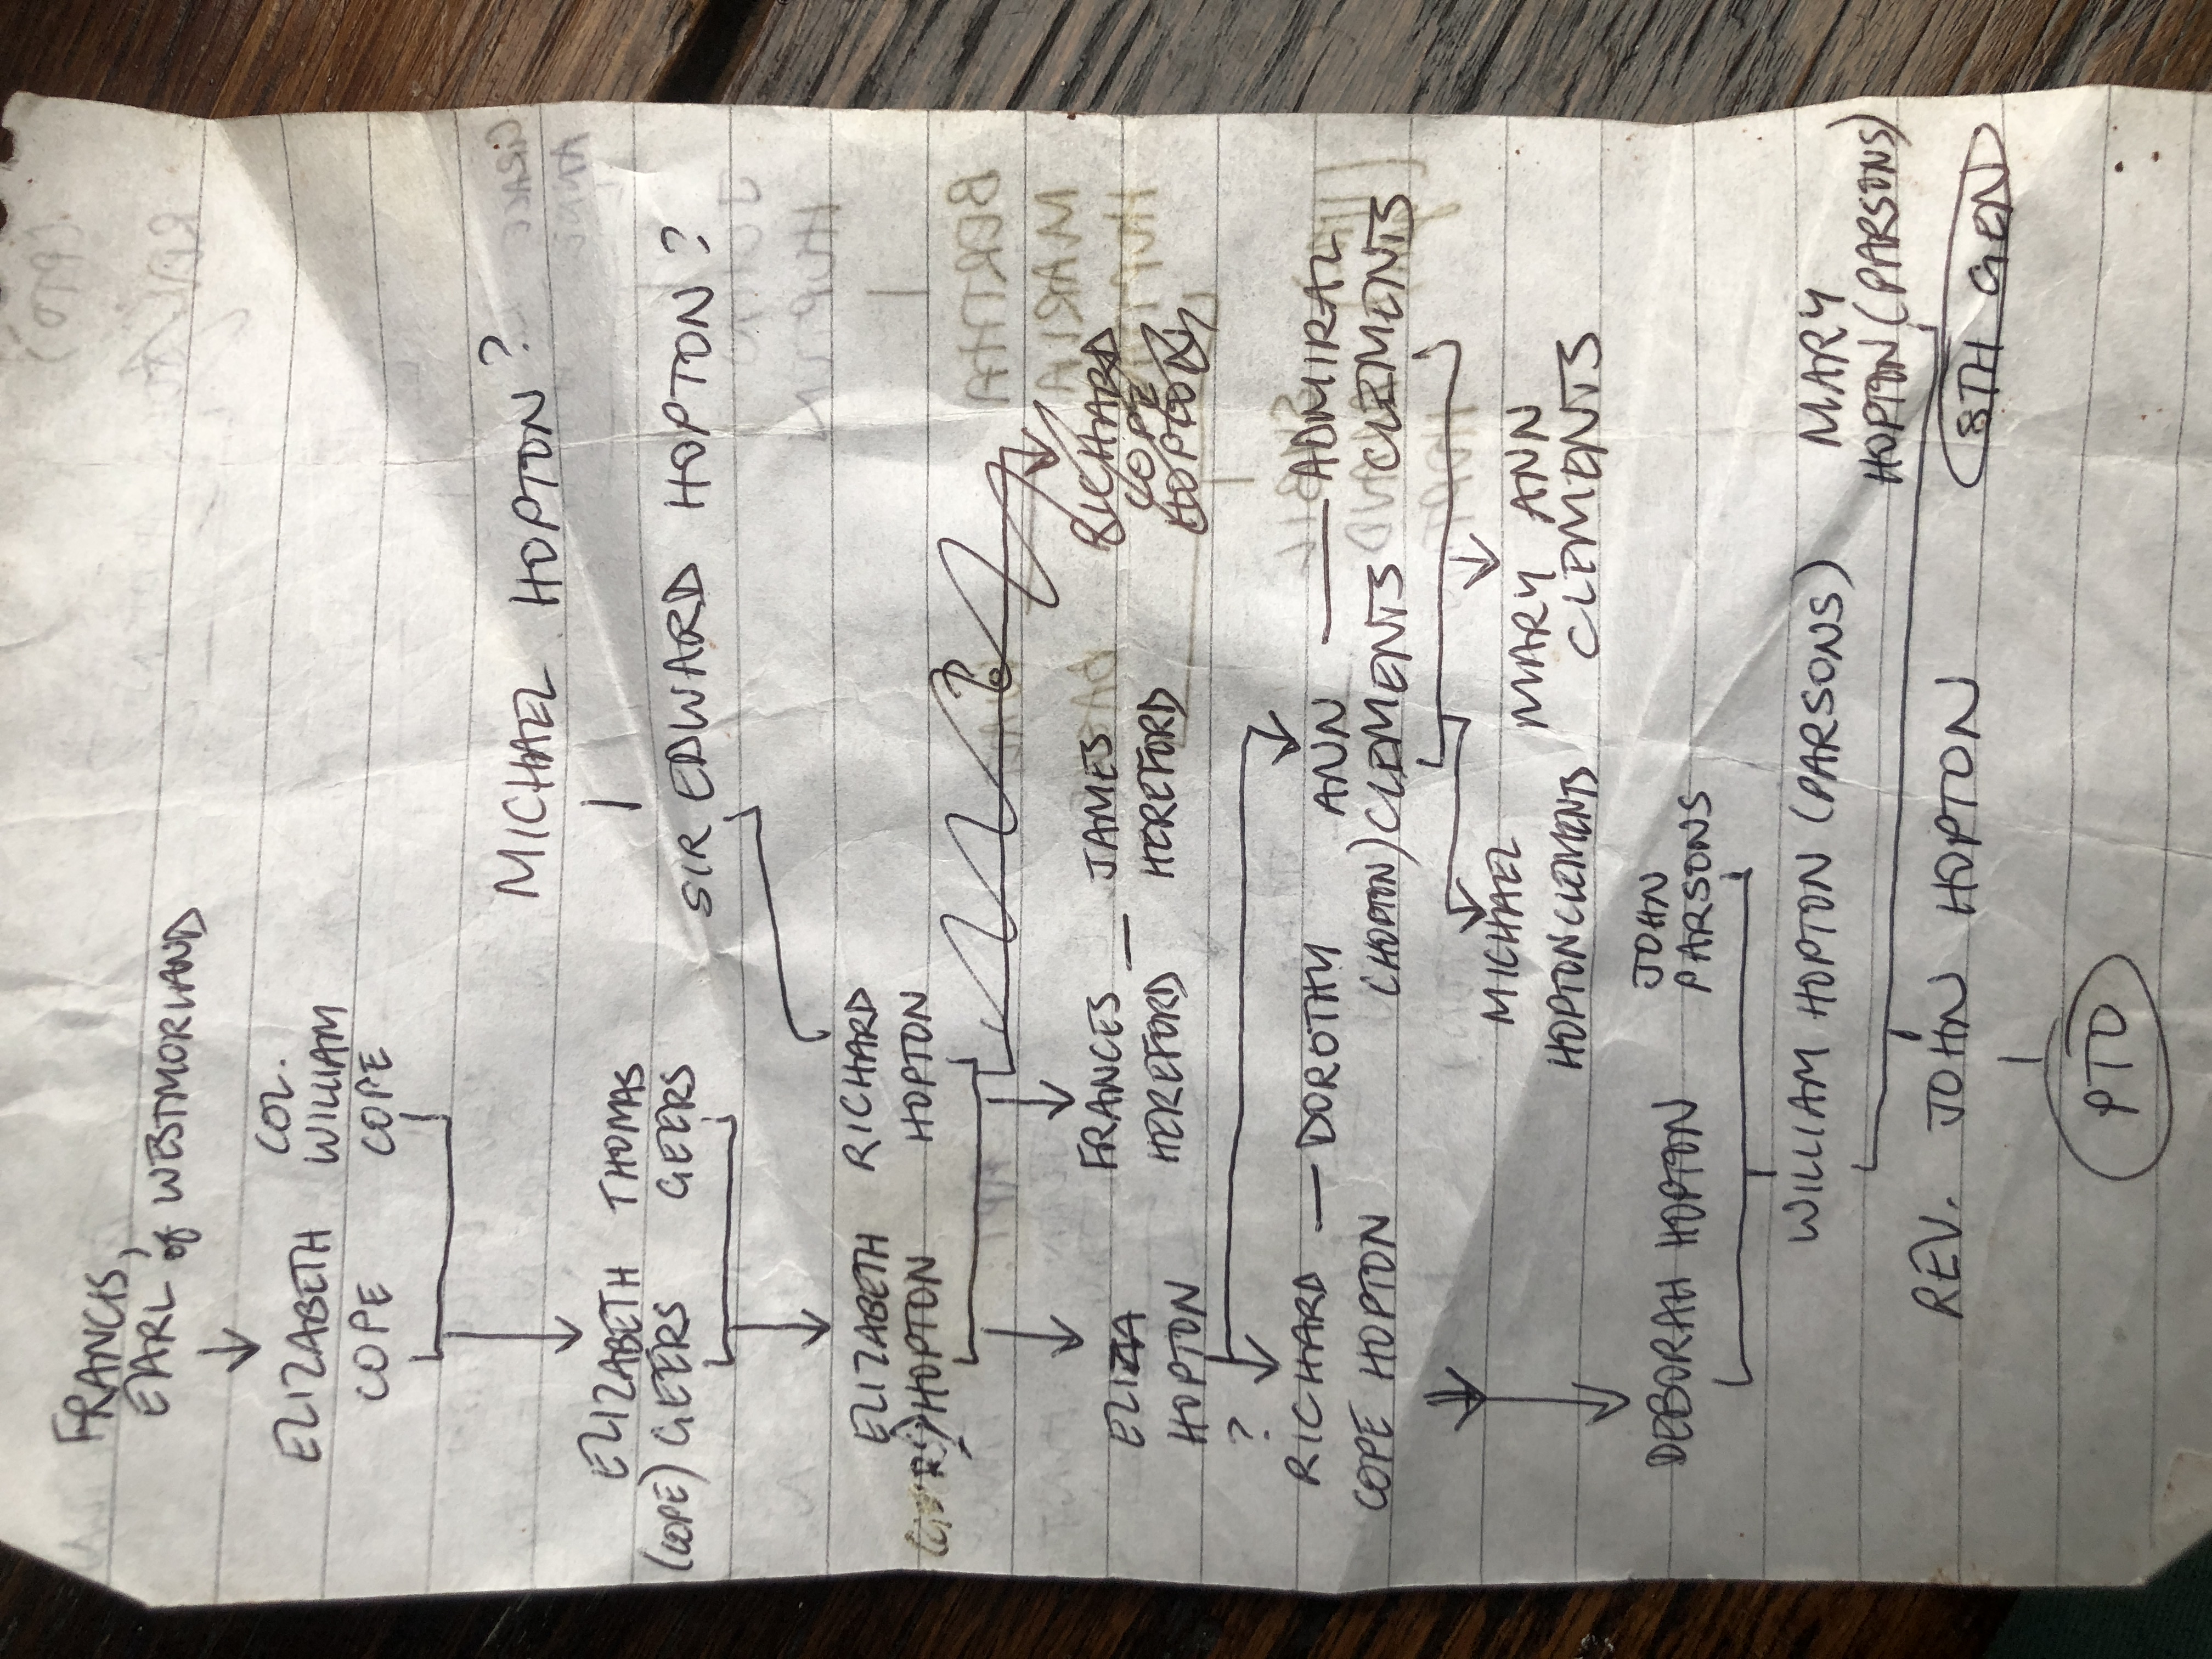 FRANCIS,
EARL of WESTMORLAND
COL.
ELIZABETH WILLIAM
COPE COPE
MICHAEL HOPTON?
ELIZABETH THOMAS
(COPE) GEERS GEERS
SIR EDWARD HOPTON?
ELIZABETH RICHARD
HOPTON HOPTON
?
ELIZA FRANCES — JAMES RICHARD
HOPTON HEREFORD HEREFORD COPE
HOPTON
?
RICHARD — DOROTHY ANN — ADMIRAL
COPE HOPTON (HOPTON) CLEMENTS CLEMENTS
MICHAEL MARY ANN
HOPTON CLEMENTS CLEMENTS
JOHN
DEBORAH HOPTON PARSONS
MARY
WILLIAM HOPTON (PARSONS) HOPTON (PARSONS)
REV. JOHN HOPTON 8TH GEN
PTO